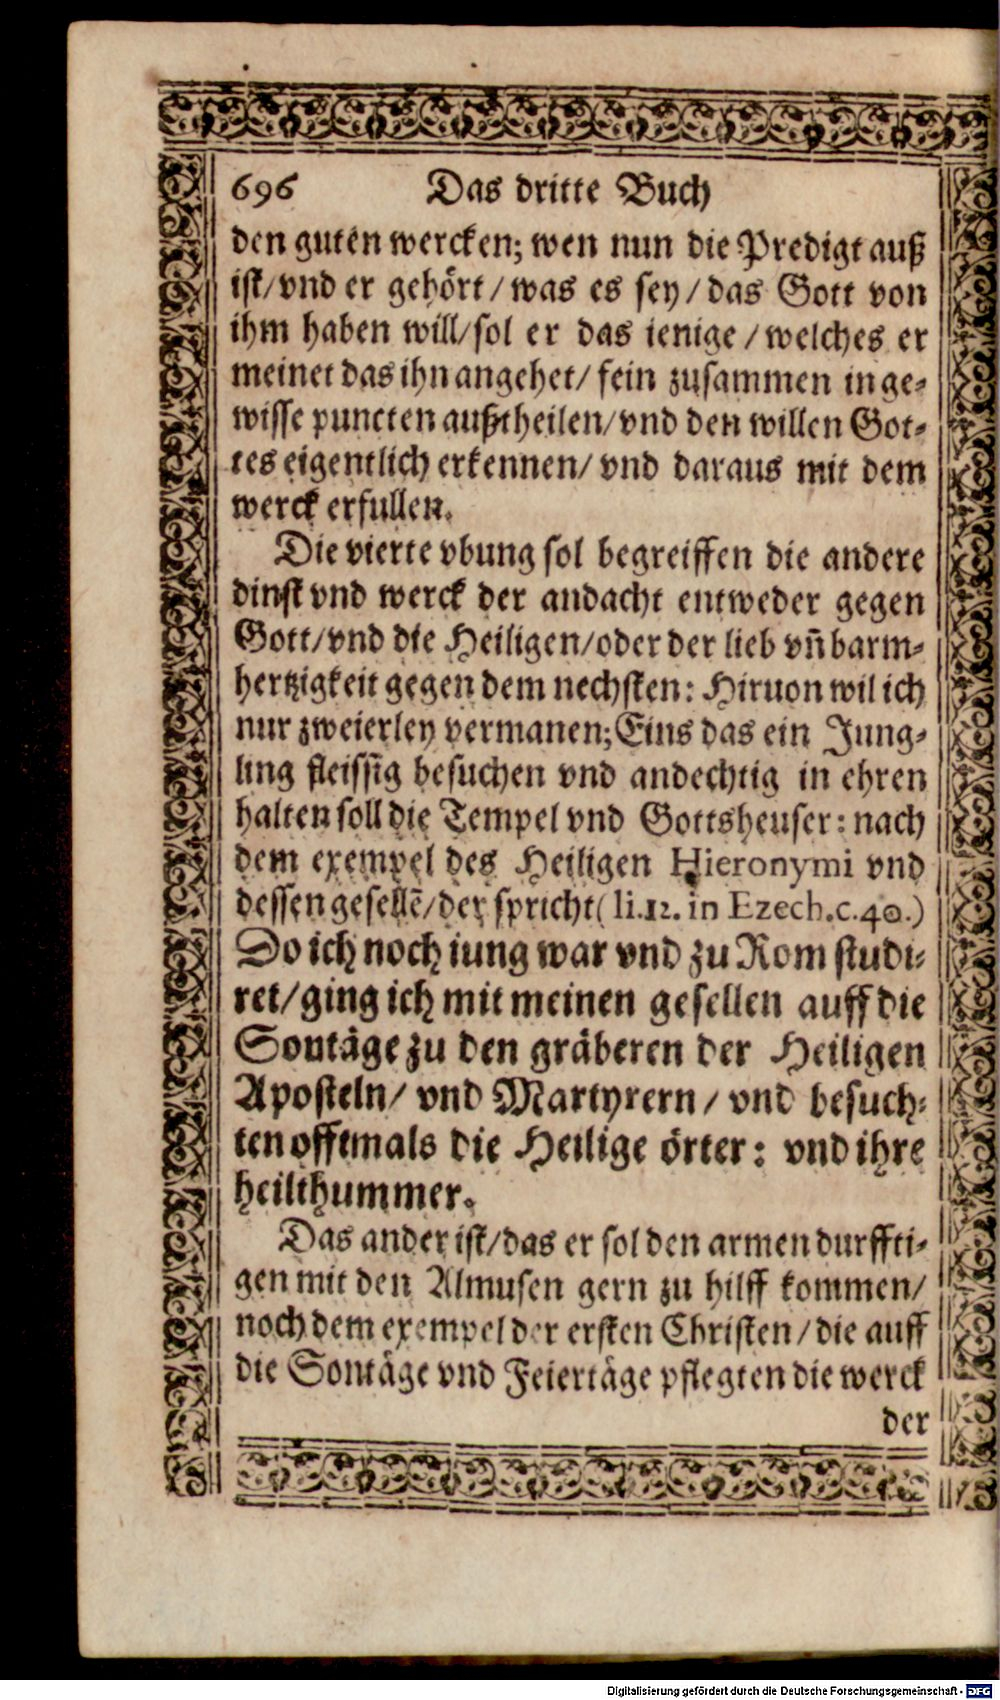 696 Das dritte Buch
den guten wercken; wen nun die Predigt auß
ist/ vnd er gehört / was es sey / das Gott von
ihm haben will/ sol er das ienige / welches er
meinet das ihn angehet/ fein zusammen in ge-
wisse puncten außtheilen/ vnd den willen Got-
tes eigentlich erkennen/ vnd daraus mit dem
werck erfullen.
Die vierte vbung sol begreiffen die andere
dinst vnd werck der andacht entweder gegen
Gott/ vnd die Heiligen/ oder der lieb vñ barm-
hertzigkeit gegen dem nechsten: Hiruon wil ich
nur zweierley vermanen; Eins das ein Jung-
ling fleissig besuchen vnd andechtig in ehren
halten soll die Tempel vnd Gottsheuser: nach
dem exempel des Heiligen Hieronymi vnd
dessen gesellẽ/ der spricht ( li.12. in Ezech.c.40.)
Do ich noch iung war vnd zu Rom studi-
ret/ ging ich mit meinen gesellen auff die
Sontäge zu den gräberen der Heiligen
Aposteln/ vnd Martyrern / vnd besuch-
ten offtmals die Heilige örter: vnd ihre
heilthummer.
Das ander ist/ das er sol den armen durffti-
gen mit den Almusen gern zu hilff kommen/
noch dem exempel der ersten Christen / die auff
die Sontäge vnd Feiertäge pflegten die werck
der
Digitalisierung gefördert durch die Deutsche Forschungsgemeinschaft - DFG